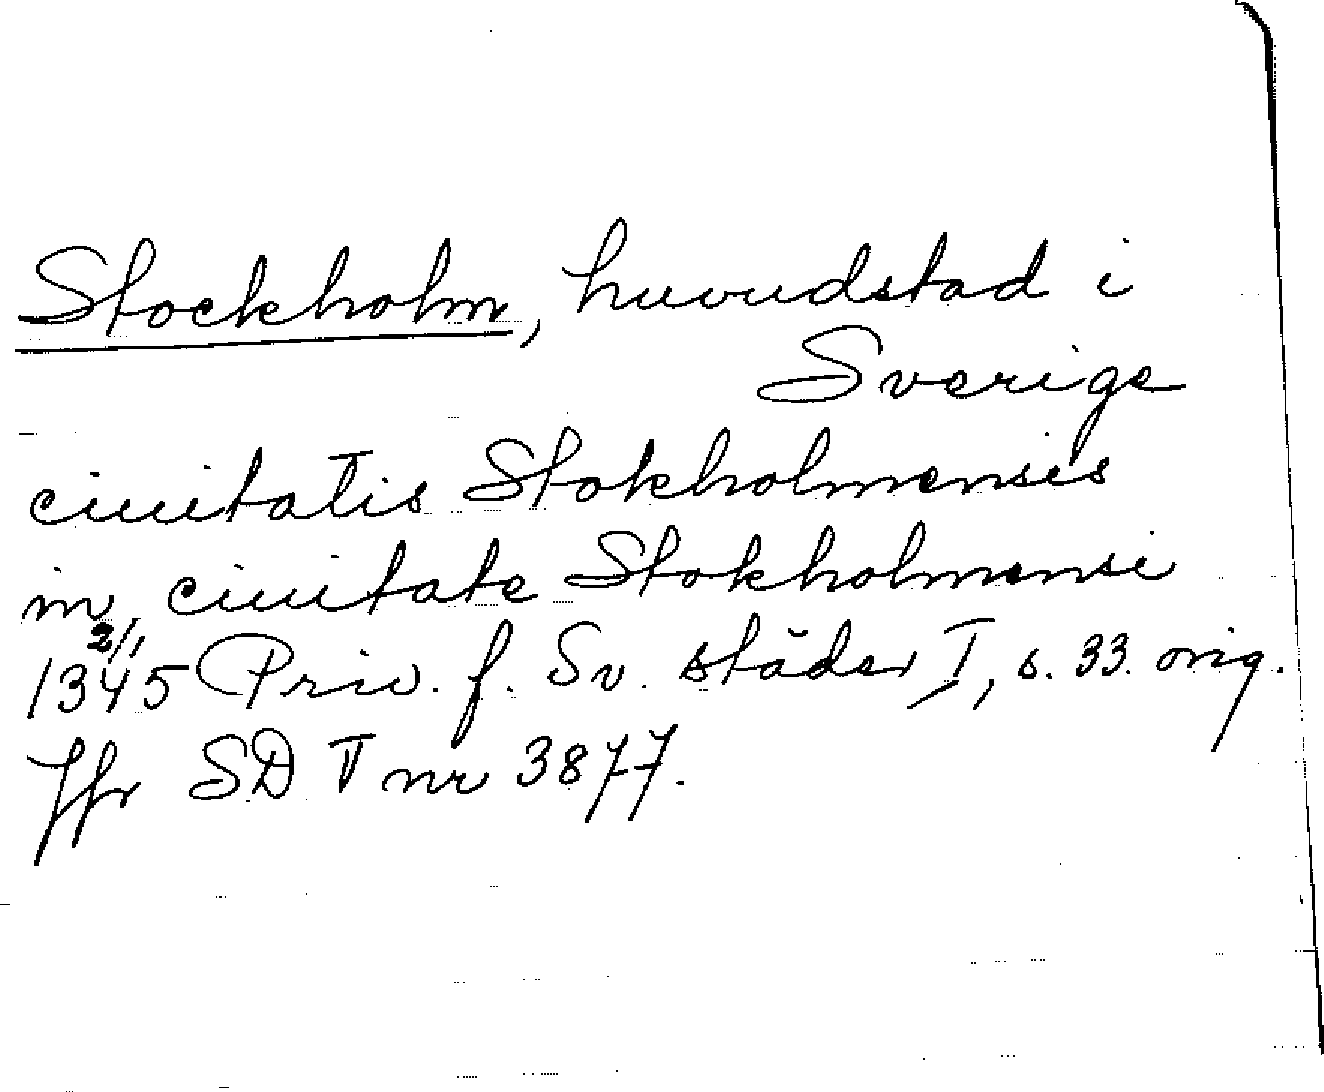 Stockholm, huvudstad i
Sverige
ciuitatis Stokholmensis
in ciuitate Stokholmensi
1345 2/1 Priv. f. Sv. städer I, s. 33. orig.
Jfr SD V nr 3877.